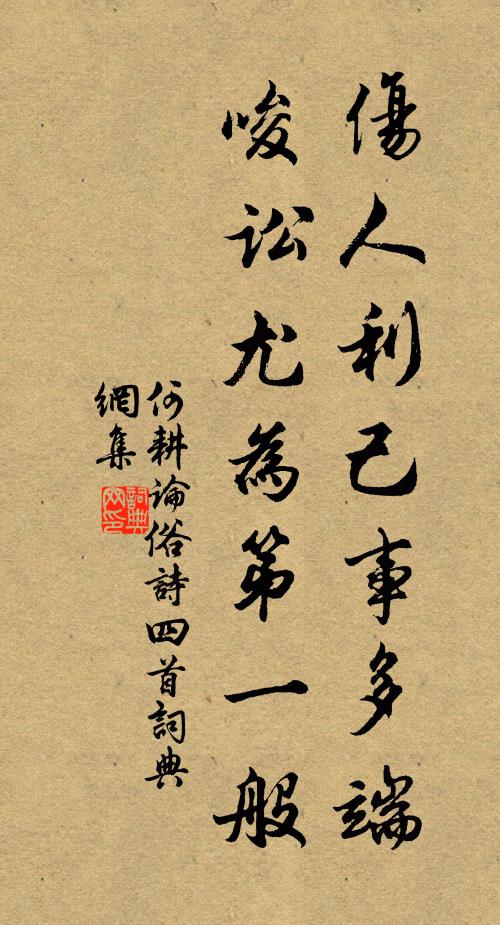 傷人利己事多端
唆訟尤為第一般
何耕論俗詩四首詞典
網集
詞典
网印